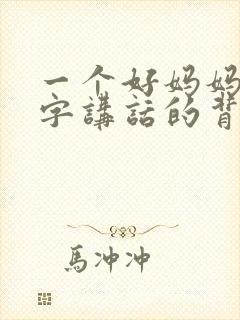 一个好妈妈
字講話的背
馬冲冲